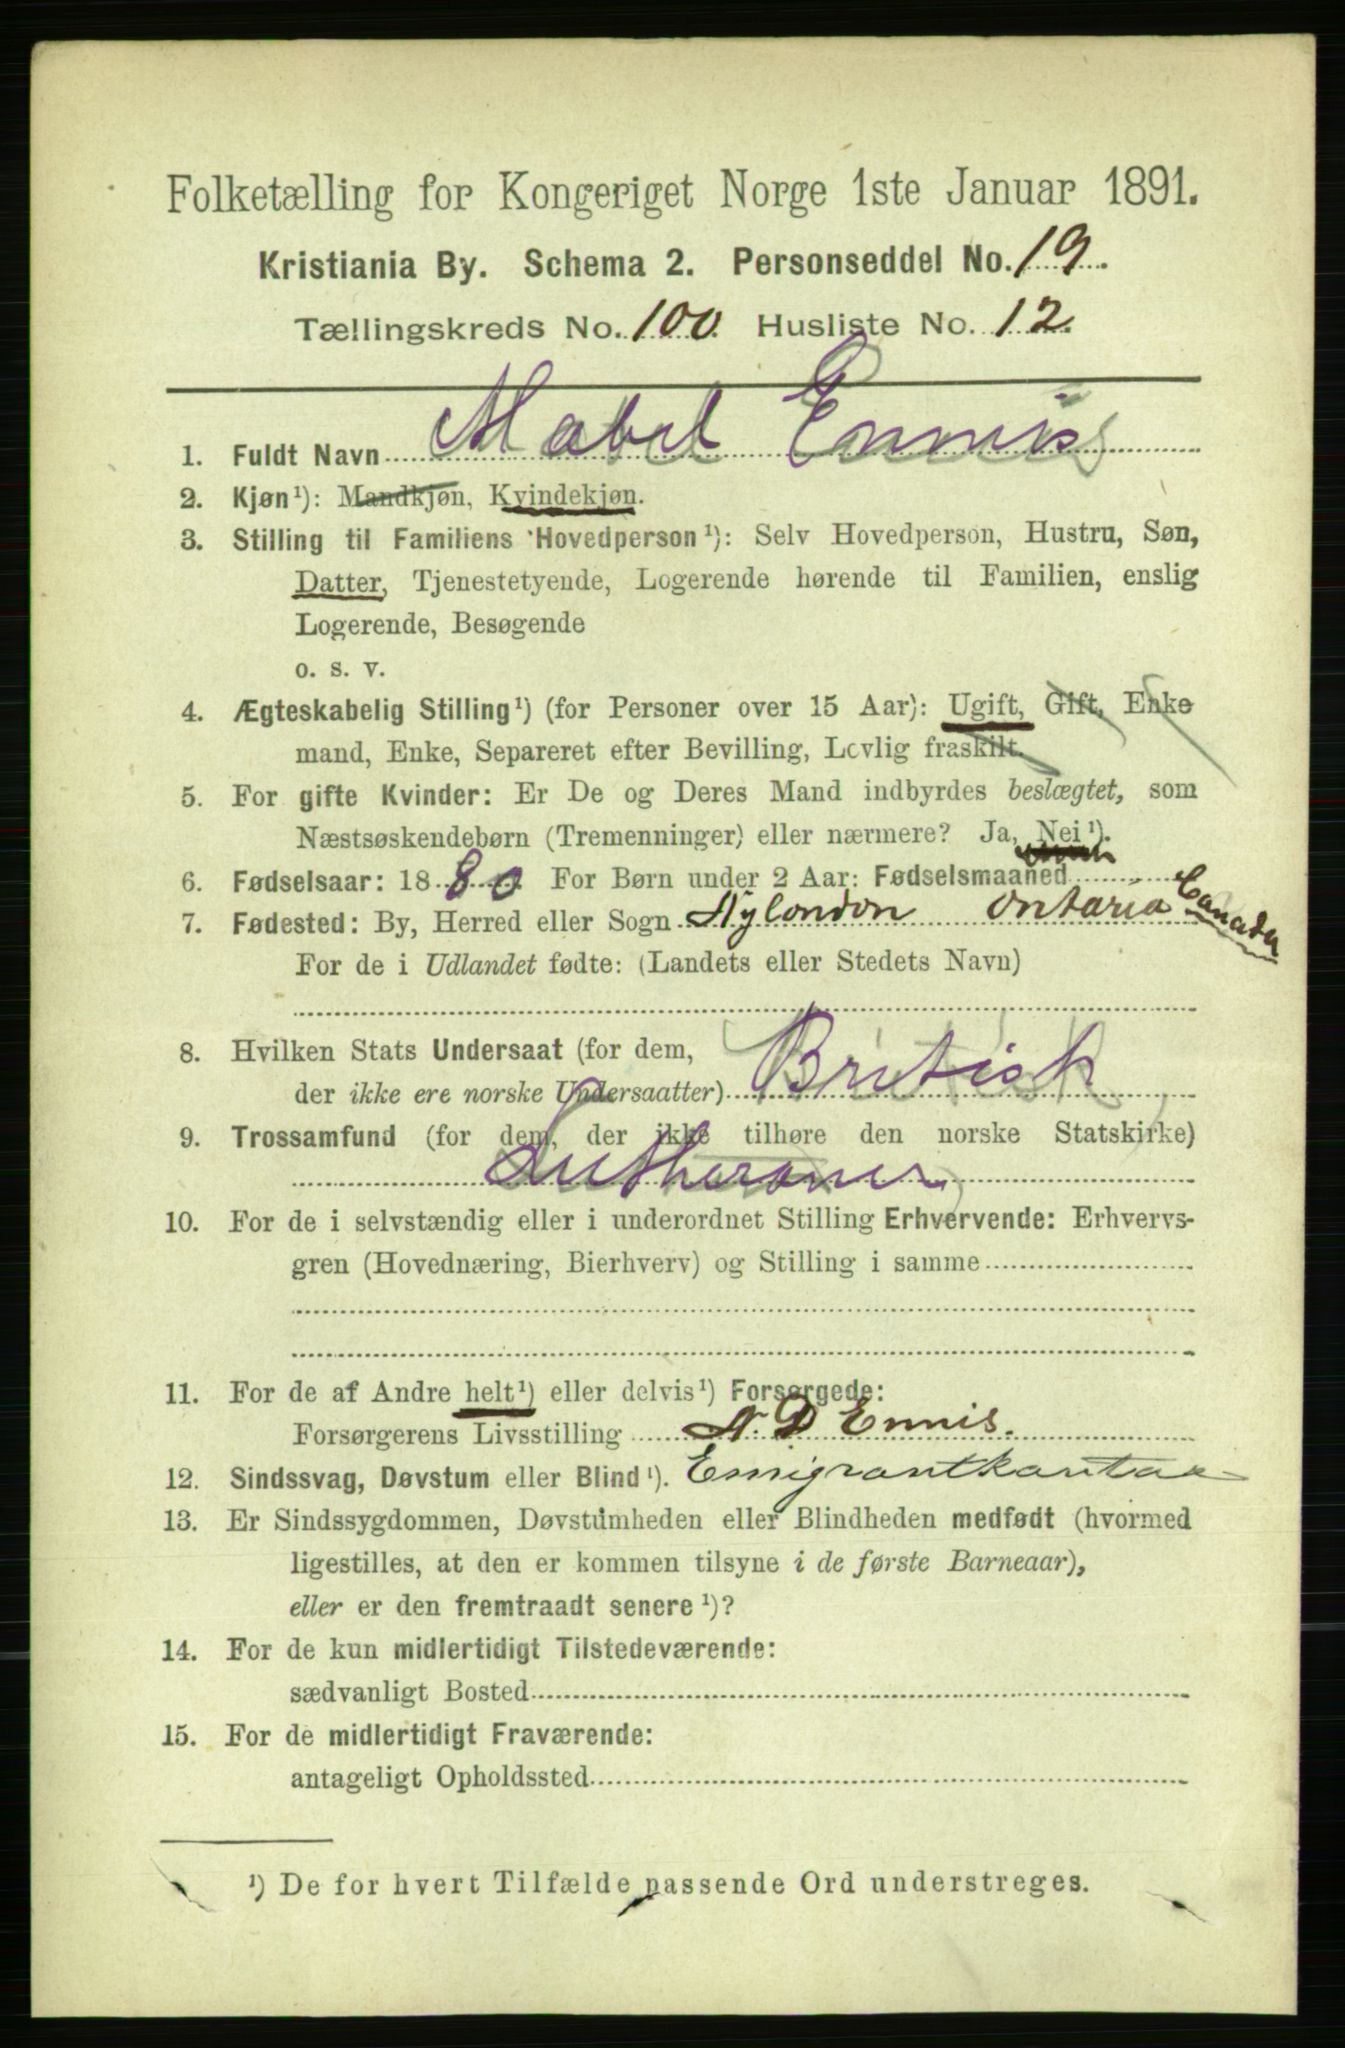 Folketælling for Kongeriget Norge 1ste Januar 1891.
Kristiania By. Schema 2. Personseddel No. 19.
Tællingskreds No. 100 Husliste No. 12.
1. Fuldt Navn Mabel Ennis
2. Kjøn¹): Mandkjøn, Kvindekjøn.
3. Stilling til Familiens Hovedperson¹): Selv Hovedperson, Hustru, Søn,
Datter, Tjenestetyende, Logerende hørende til Familien, enslig
Logerende, Besøgende
o. s. v.
4. Ægteskabelig Stilling¹) (for Personer over 15 Aar): Ugift, Gift, Enke
mand, Enke, Separeret efter Bevilling, Lovlig fraskilt.
5. For gifte Kvinder: Er De og Deres Mand indbyrdes beslægtet, som
Næstsøskendebørn (Tremenninger) eller nærmere? Ja, Nei¹).
6. Fødselsaar: 1880 For Børn under 2 Aar: Fødselsmaaned
7. Fødested: By, Herred eller Sogn Nylondon Ontaria Canada
For de i Udlandet fødte: (Landets eller Stedets Navn)
8. Hvilken Stats Undersaat (for dem,
der ikke ere norske Undersaatter) British
9. Trossamfund (for dem, der ikke tilhøre den norske Statskirke)
Lutheraner
10. For de i selvstændig eller i underordnet Stilling Erhvervende: Erhvervs-
gren (Hovednæring, Bierhverv) og Stilling i samme
11. For de af Andre helt¹) eller delvis¹) Forsørgede:
Forsørgerens Livsstilling N. D Ennis.
12. Sindssvag, Døvstum eller Blind¹). Emigrantkontor
13. Er Sindssygdommen, Døvstumheden eller Blindheden medfødt (hvormed
ligestilles, at den er kommen tilsyne i de første Barneaar),
eller er den fremtraadt senere¹)?
14. For de kun midlertidigt Tilstedeværende:
sædvanligt Bosted
15. For de midlertidigt Fraværende:
antageligt Opholdssted
¹) De for hvert Tilfælde passende Ord understreges.